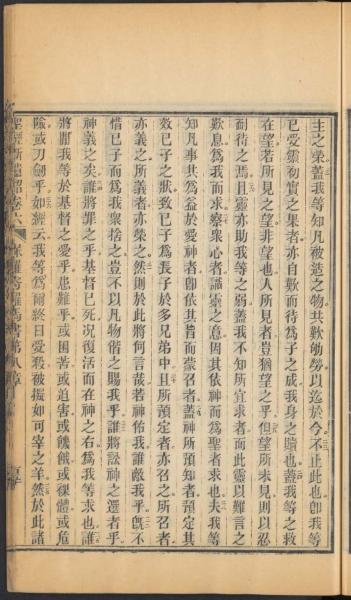 主之榮蓋我等知凡被造之物共歎劬勞以迄於今不止此也卽我等
已受靈初實之果者亦自歎而待爲子之成我身之贖也蓋我等之救
在望若所見之望非望也人所見者豈猶望之乎但望所未見則以忍
耐而待之焉且靈亦助我等之弱蓋我不知所宜求者而此靈以難言之
歎息爲我而求察衆心者識靈之意因其依神而爲聖者求也夫我等
知凡事共爲益於愛神者卽依其旨而蒙召者蓋神所預知者預定其
效已子之狀致已子爲長子於多兄弟中且所預定者亦召之所召者
亦義之所義者亦榮之然則於此將何言哉若神佑我誰敵我乎旣不
惜已子而爲我衆捨之豈不以凡物偕之賜我乎誰將訟神之選者乎
神義之矣誰將罪之乎基督已死况復活而在神之右爲我等求也誰
將間我等於基督之愛乎患難乎或困苦或迫害或饑餓或裸體或危
險或刀劍乎如經云我等爲爾終日受殺被擬如可宰之羊然於此諸
聖經新遺詔卷六 保羅寄羅馬書第八章